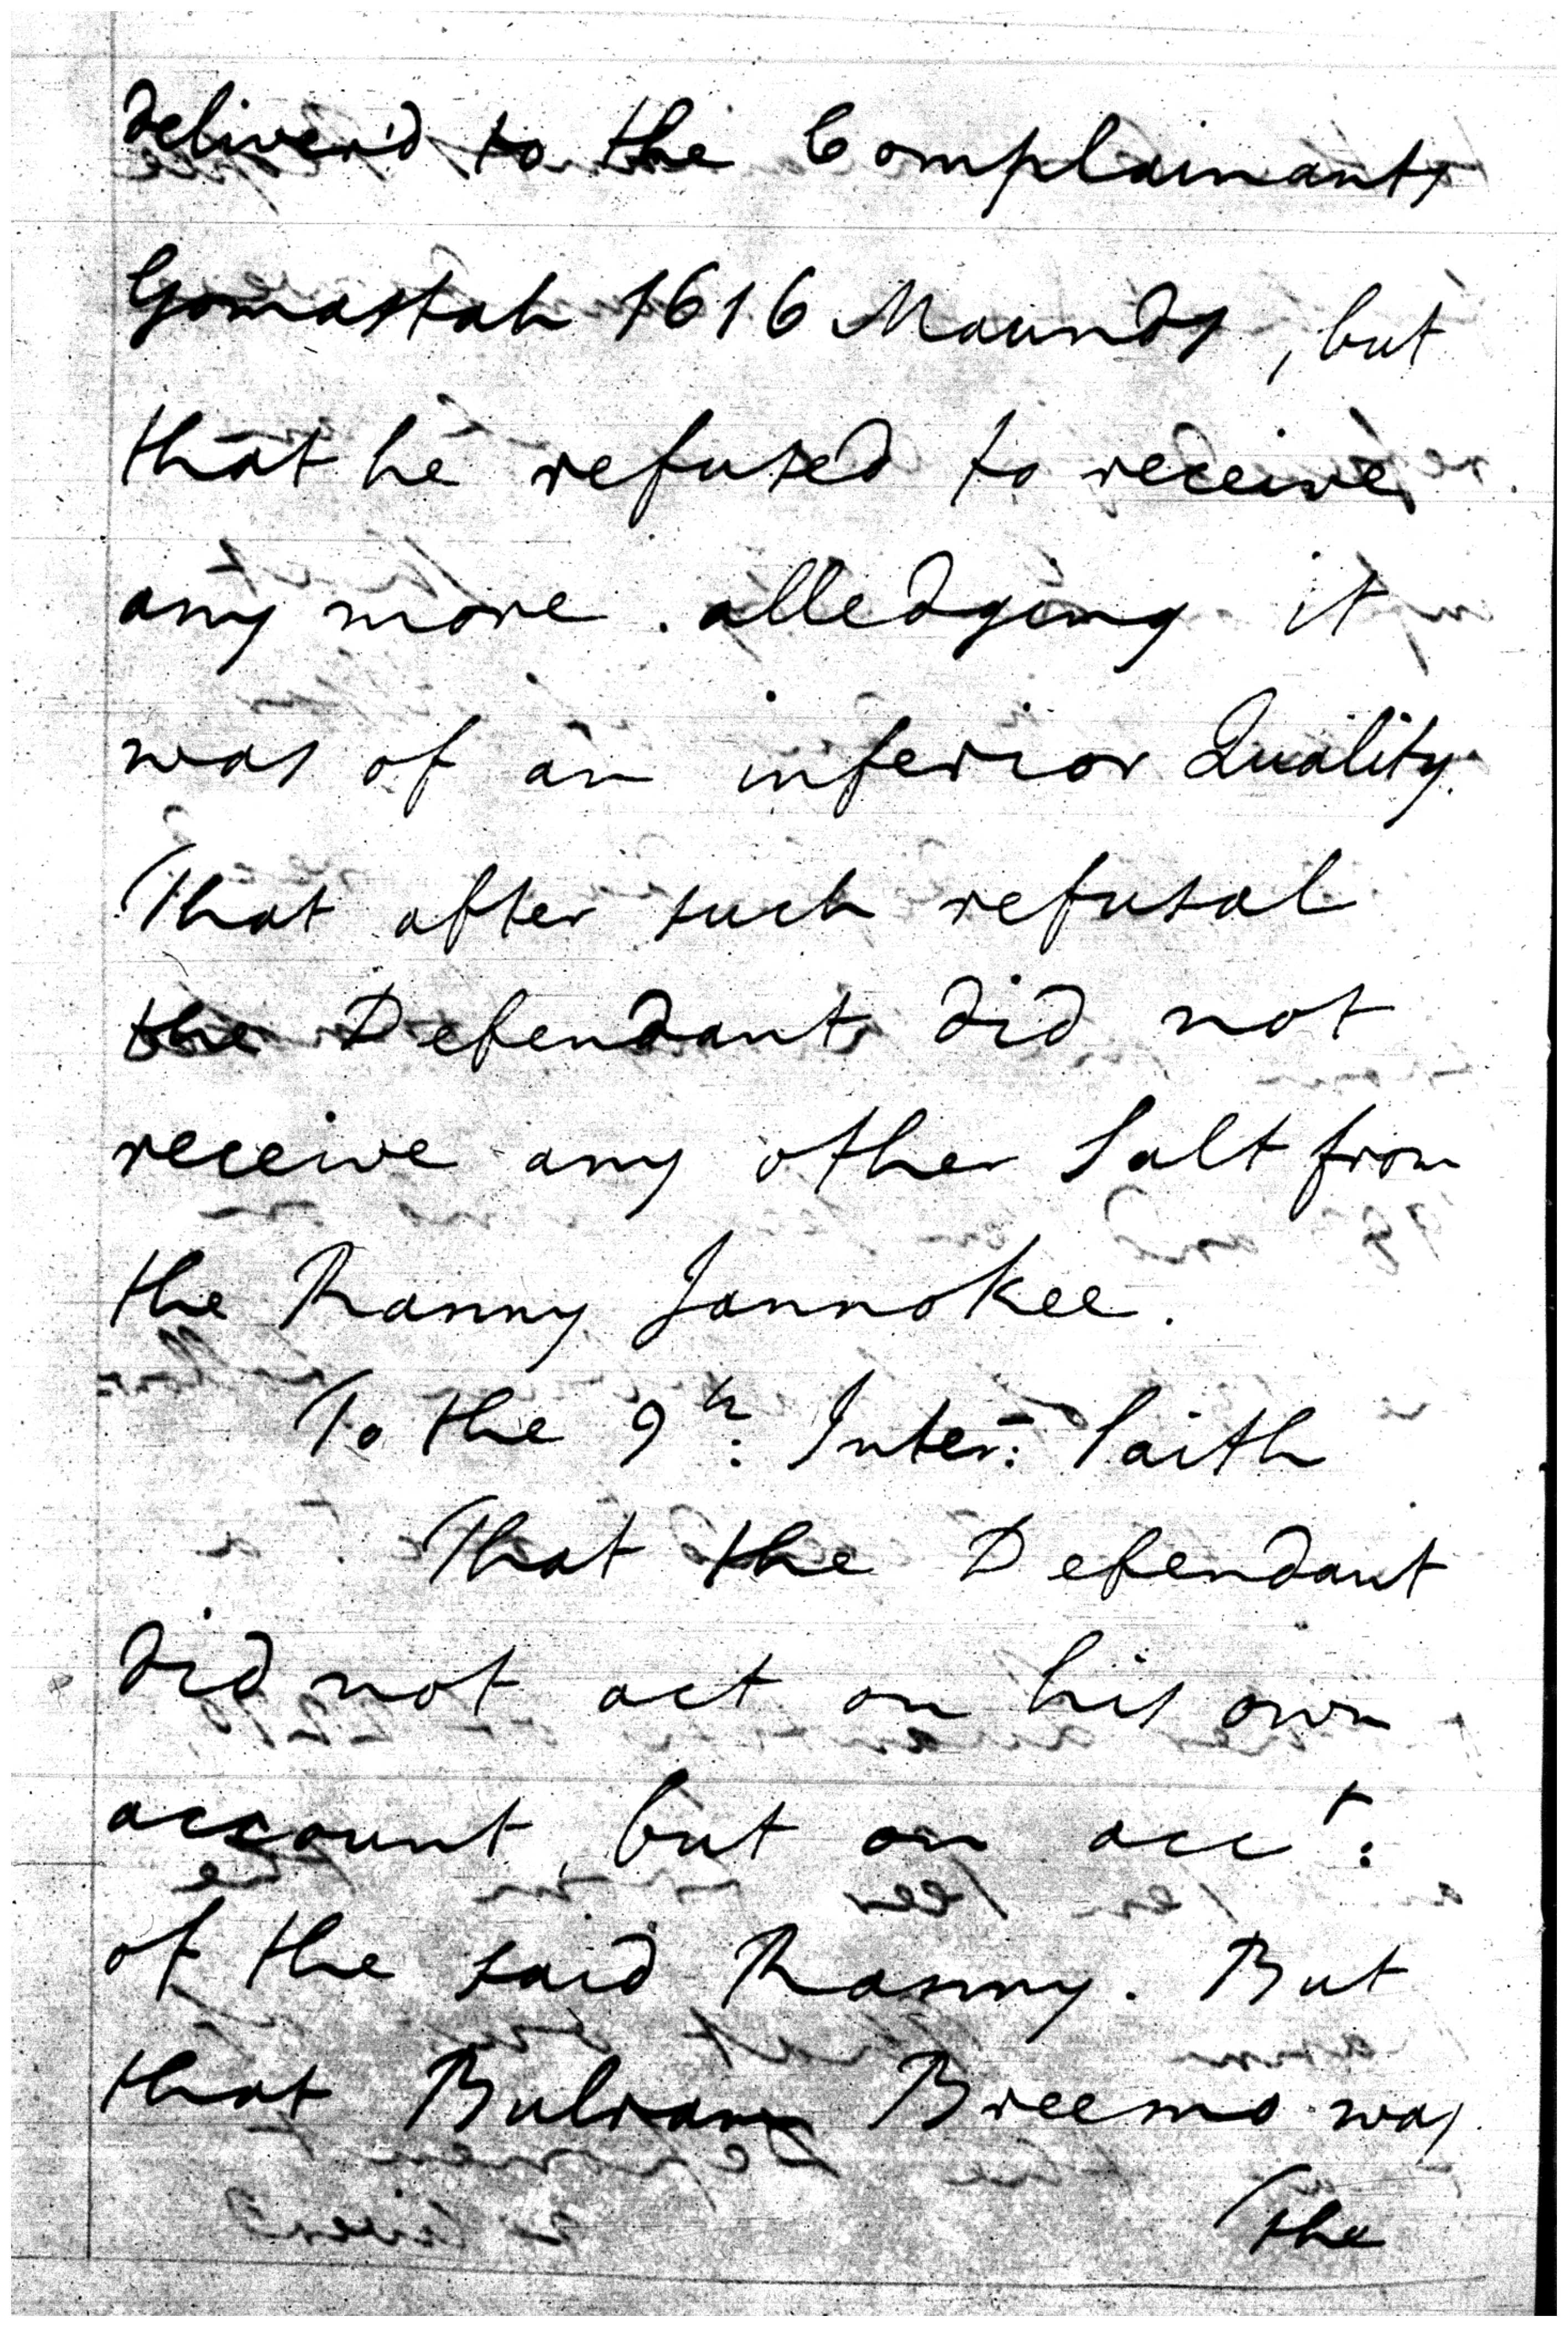 deliver'd to the Complainants
Gomastah 1616 Maunds, but
that he refused to receive
any more. alledging it
was of an inferior Quality.
That after such refusal
the Defendant did not
receive any other Salt from
the Ranny Jannokee.
To the 9th: Inter: Saith
That the Defendant
did not act on his own
account, but on acct:
of the said Ranny. But
that Bulram Breemo was
The